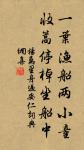 一葉漁船兩小童
收篙停棹坐船中
楊萬里舟過安仁詞典
網